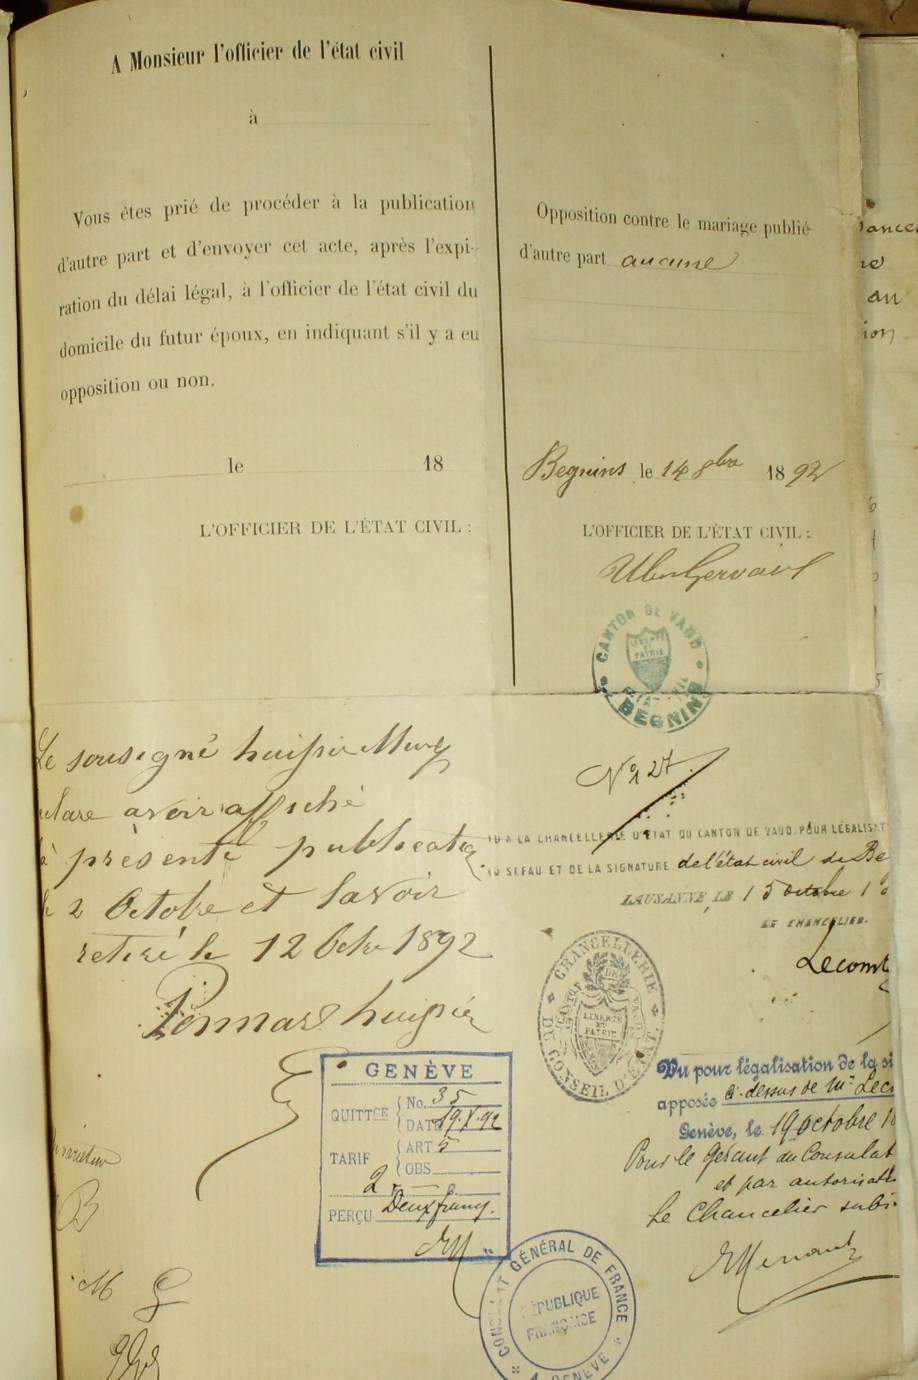 A Monsieur l'officier de l'état civil
à
Vous êtes prié de procéder à la publication
d'autre part et d'envoyer cet acte, après l'expi-
ration du délai légal, à l'officier de l'état civil du
domicile du futur époux, en indiquant s'il y a eu
opposition ou non.
le 18
L'OFFICIER DE L'ÉTAT CIVIL :
Opposition contre le mariage publié
d'autre part aucune
Begnins le 14 8bre 1892
L'OFFICIER DE L'ÉTAT CIVIL :
CANTON DE VAUD
LIBERTÉ
ET
PATRIE
BEGNINS
Le sousigné huissier
clare avoir affiché
présente publication
le 2 Octobre et l'avoir
retiré le 12 Octre 1892
huissier
No 127.
VU A LA CHANCELLERIE D'ÉTAT DU CANTON DE VAUD, POUR LÉGALISAT
DU SCEAU ET DE LA SIGNATURE de l'état civil de Be
LAUSANNE, LE 15 octobre 18
LE CHANCELIER.
Lecomt
CHANCELLERIE DU CONSEIL D'ETAT.
CANTON DE VAUD
LIBERTÉ
ET
PATRIE
Vu pour légalisation de la si
apposée ci-dessus de Mr Leco
Genève, le 19 octobre 18
Pour le gérant du Consulat
et par autorisati
Le Chancelier subs
GENÈVE
QUITTCE No. 35
DATE 19.X.92
TARIF ART 5
OBS
2
PERÇU Deux francs.
CONSULAT GÉNÉRAL DE FRANCE
A GENÈVE
RÉPUBLIQUE
FRANÇAISE